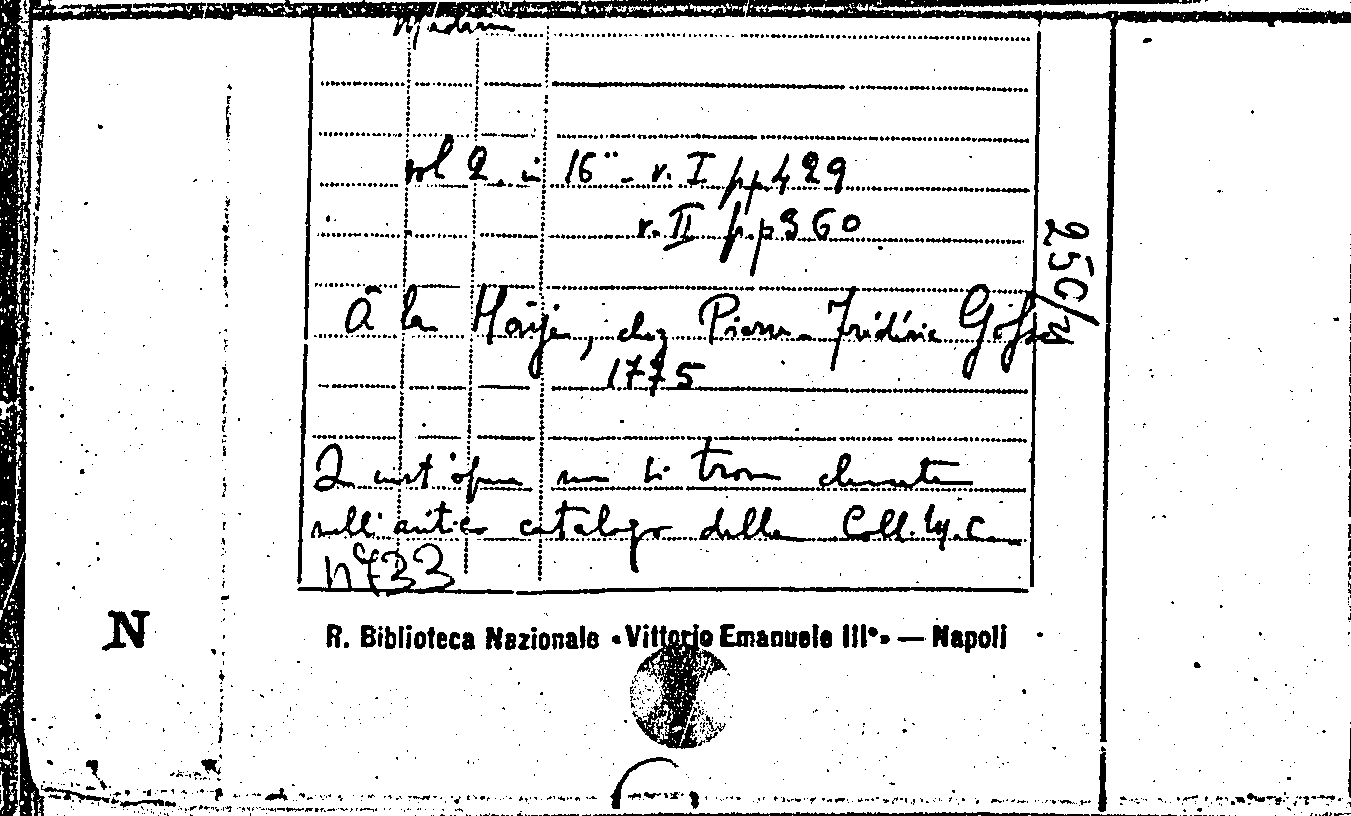 Madame
vol 2. in 16° - v. I pp. 429
v. II p.p 360
À la Haye, chez Pierre-Frédéric Gosse
1775
Quest'opera non si trova elencata
nell'antico catalogo della Coll. M.C.
n° 733
N
R. Biblioteca Nazionale «Vittorio Emanuele III°» — Napoli